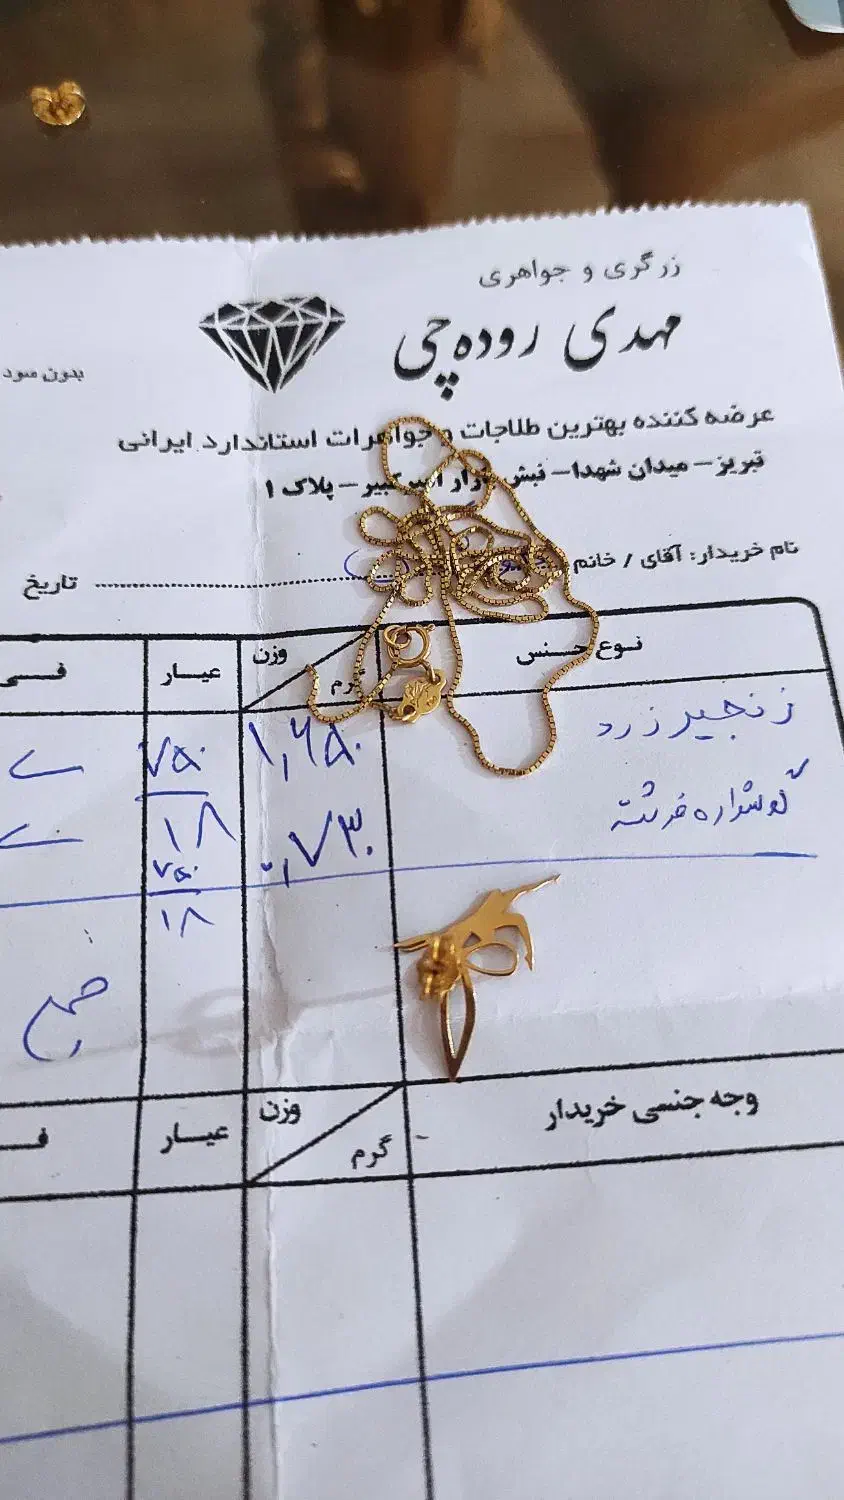 زرگری و جواهری
مهدی روده‌چی
بدون سود
عرضه کننده بهترین طلاجات و جواهرات استاندارد ایرانی
تبریز - میدان شهدا - نبش بازار امیرکبیر - پلاک ۱
نام خریدار: آقای / خانم
تاریخ
نوع جنس
وزن
گرم
عیار
فـ
زنجیر زرد
۱,۶۵۰
۷۵۰
۱۸
گوشواره فرشته
۰,۷۳۰
۷۵۰
۱۸
جمع
وجه جنسی خریدار
وزن
گرم
عیار
فـ